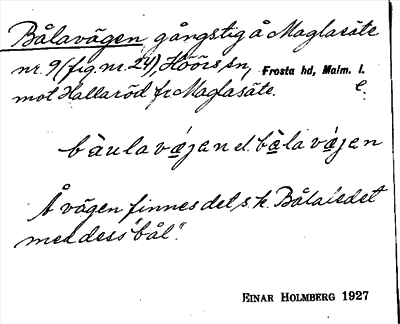 Bålavägen gångstig å Maglasäte
nr. 9 (fig. nr. 24), Höörs sn, Frosta hd, Malm. l.
mot Hallaröd fr Maglasäte. e.
bàulavä́jen el. bàlavä́jen
Å vägen finnes det s. k. Bålaledet
med dess "bål".
EINAR HOLMBERG 1927